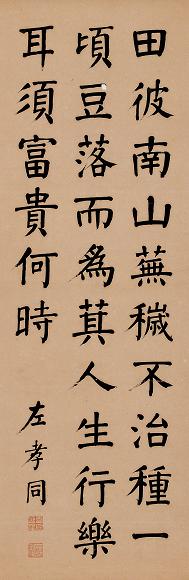 田彼南山蕪穢不治種一
頃豆落而為萁人生行樂
耳須富貴何時
左孝同